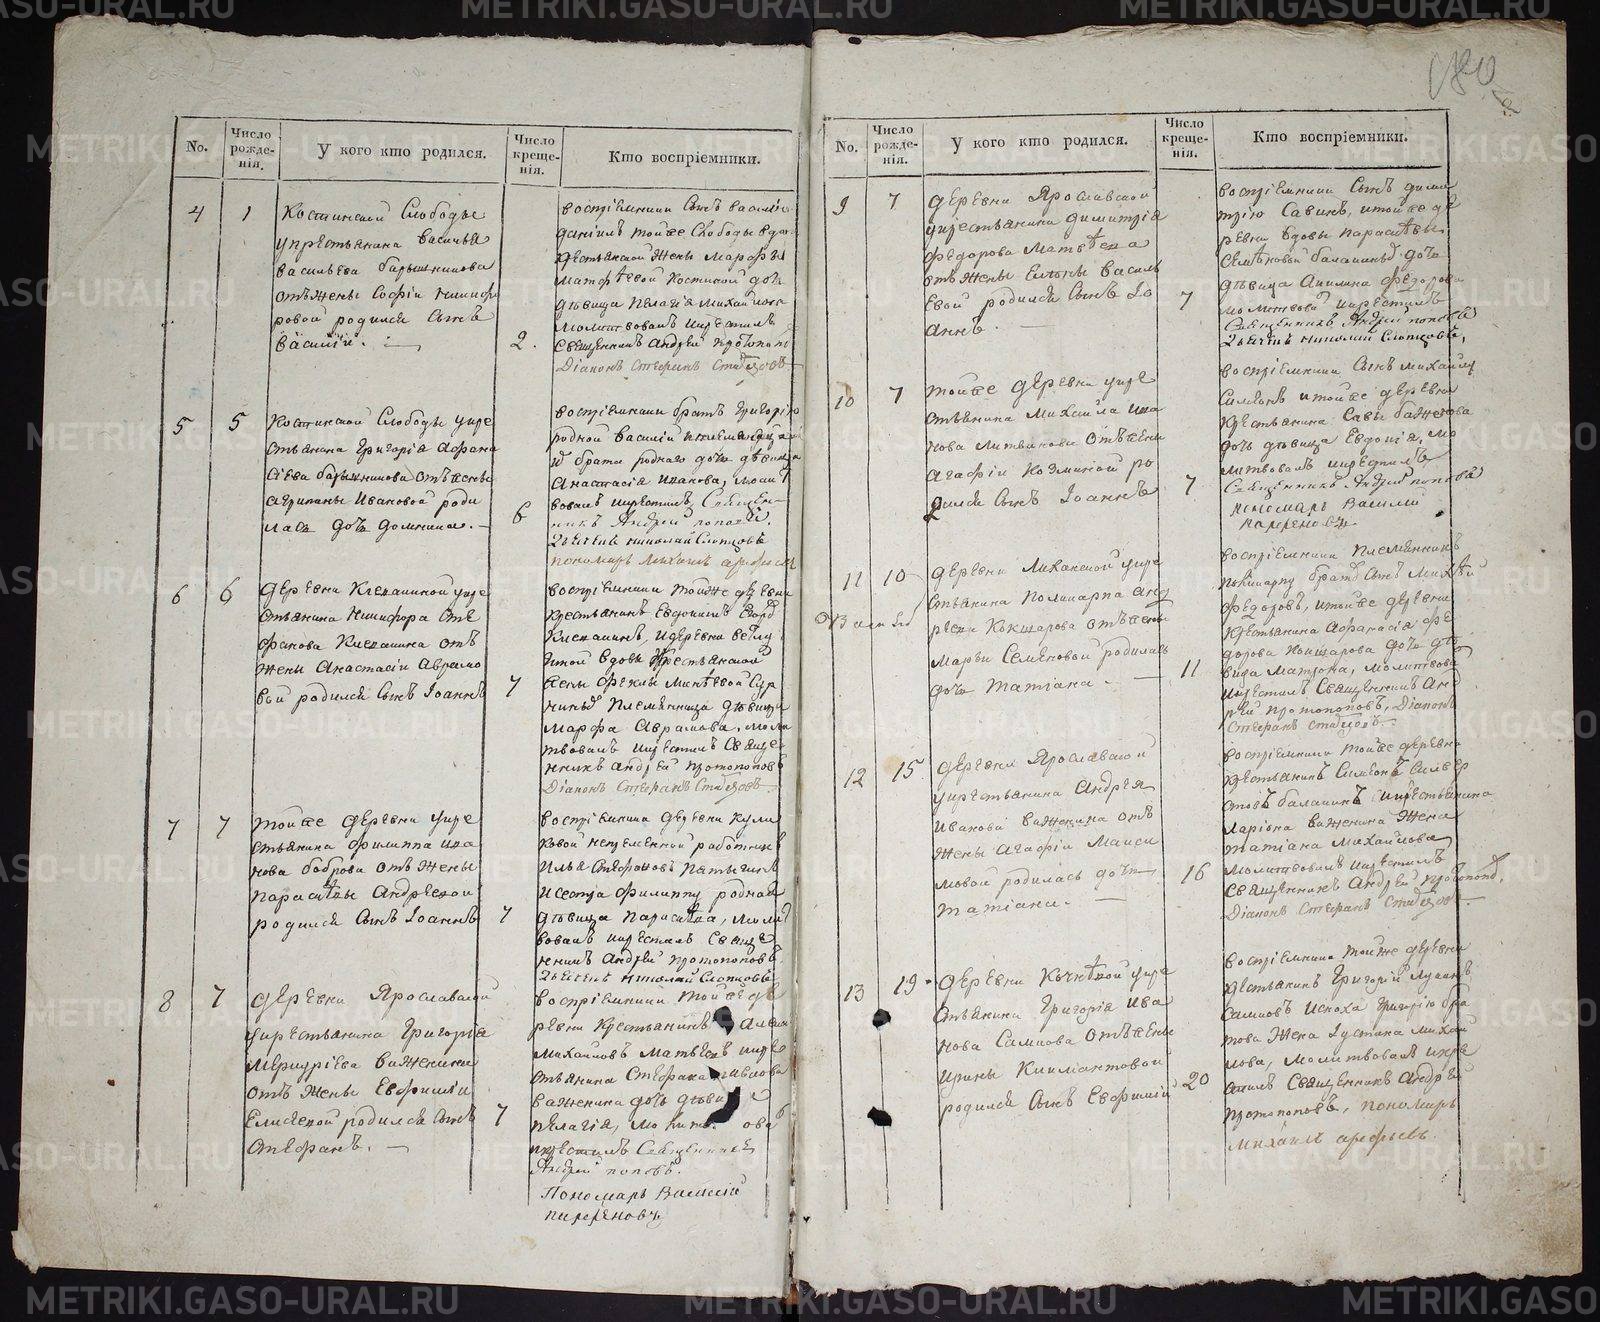 180
No.
Число рожде-нія.
У кого кто родился.
Число креще-нія.
Кто воспріемники.
4
1
Костинской Слободы
крестьянина Василья
Васильева Барышникова
отъ жены Софіи Никифо
ровой родился сынъ
Василій.
2.
воспріемники сынъ Василія
Даніилъ тойже Слободы вдовы
крестьянской жены Марфы
Матфѣевой Костиной дочь
дѣвица Пелагія Михайлова
молитвовалъ и крестилъ
Священникъ Андрей Протопоп
Діаконъ Стефанъ
5
5
Костинской Слободы кре
стьянина Григорія Афана
сьева Барышникова отъ жены
Агрипины Ивановой роди
лась дочь Домника.
6
воспріемники братъ Григорію
родной Василій и
и брата роднаго дочь дѣвица
Анастасія Иванова, молит
вовалъ и крестилъ Священ-
никъ Андрей Поповъ.
Дьячекъ Николай Слопцовъ
пономарь Михаилъ Арефьевъ
6
6
деревни Клевакиной кре
стьянина Никифора Сте
фанова Клевакина отъ
жены Анастасіи Аврамо
вой родился сынъ Іоаннъ
7
воспріемники тойже деревни
крестьянинъ Евдокимъ
Клевакинъ, и деревни
вдовы крестьянской
жены Феклы
племянница дѣвица
Марфа Аврамова, моли
твовалъ и крестилъ Священ
никъ Андрей Протопоповъ
Діаконъ Стефанъ
7
7
тойже деревни кре
стьянина Филиппа Ива
нова Боброва отъ жены
Параскѣвы Андреевой
родился сынъ Іоаннъ
7
воспріемники деревни Кули
ковой непремѣнной работникъ
Илья Стефановъ
и сестра Филиппу родная
дѣвица Параскѣва, молит
вовалъ и крестилъ Свяще
нникъ Андрей Протопоповъ
Дьячекъ Николай Слопцовъ
8
7
деревни Ярославской
крестьянина Григорья
Баженина
отъ жены Евфиміи
Елисѣевой родился сынъ
Стефанъ.
7
воспріемники тойже де
ревни крестьянинъ
Михайловъ Матвѣевъ и кре
стьянина Стефана Иванова
Баженина дочь дѣвица
Пелагія, молитвова
крестилъ Священникъ
Андрей Поповъ.
Пономарь Василій
Парфеновъ
No.
Число рожде-нія.
У кого кто родился.
Число креще-нія.
Кто воспріемники.
9
7
деревни Ярославской
крестьянина Димитрія
Федорова Матвѣева
отъ жены Елены Василь
евой родился сынъ Іо
аннъ.
7
воспріемники сынъ Дими
трію Савинъ, и тойже де
ревни вдовы Параскѣвы
Семеновой Балакиной дочь
дѣвица Акилина Федорова
молитвовалъ и крестилъ
Священникъ Андрей Поповъ
Дьячекъ Николай Слопцовъ,
10
7
тойже деревни кре
стьянина Михаила Ива
нова Литвинова отъ жены
Агафіи Козминой ро
дился сынъ Іоаннъ
7
воспріемники сынъ Михайлу
Симеонъ и тойже деревни
крестьянина Савы Баженова
дочь дѣвица Евдокія, мо
литвовалъ и крестилъ
Священникъ Андрей Поповъ
пономарь Василій
Парфеновъ
11
10
деревни крe
стьянина Поликарпа Анд
реева Кокшарова отъ жены
Марьи Семеновой родилась
дочь Татіана.
11
воспріемники племянникъ
Поликарпу братов сынъ
Федоровъ, и тойже деревни
крестьянина Афанасія Фе
дорова Кокшарова дочь дѣ
вица Матрона, молитвова
и крестилъ Священникъ Анд
рей Протопоповъ, Діаконъ
Стефанъ
12
15
деревни Ярославской
крестьянина Андрея
Иванова Баженина отъ
жены Агафіи Макси
мовой родилась дочь
Татіана.
16
воспріемники тойже деревни
крестьянинъ Симеонъ Сильвер
стовъ Балакинъ и крестьянина
Ларіона Баженина жена
Татіана Михайлова
молитвовалъ и крестилъ
Священникъ Андрей Протопопов.
Діаконъ Стефанъ
13
19
деревни кре
стьянина Григорія Ива
нова Самкова отъ жены
Ирины Климантовой
родился сынъ Евфимій
20
воспріемники тойже деревни
крестьянинъ Григорій
Самковъ Григорію бра
това жена Іустина Михай
лова, молитвовалъ и кре
стилъ Священникъ Андрей
Протопоповъ, пономарь
Михаилъ Арефьевъ.
METRIKI.GASO-URAL.RU